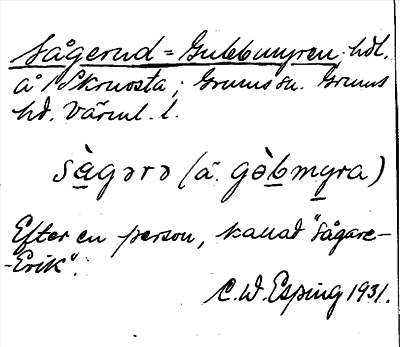 Sågerud = Gubbmyren, hdl.
å Skruvsta; Grums sn. Grums
hd. Värml. l.
sàgərə (ä. gòbmyra)
Efter en person, kallad "Sågare-
-Erik".
C.W. Esping 1931.